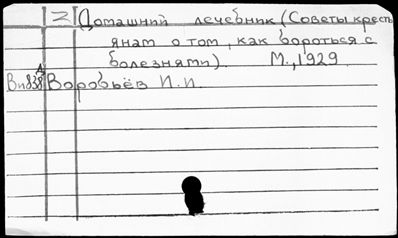 Домашний лечебник (Советы кресть
янам о том, как бороться с
болезнями). М., 1929.
Воробьёв И.И.